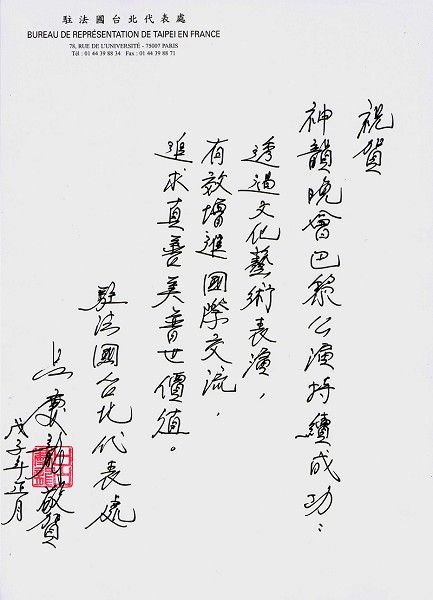 駐法國台北代表處
BUREAU DE REPRÉSENTATION DE TAIPEI EN FRANCE
78, RUE DE L'UNIVERSITÉ - 75007 PARIS
Tél : 01 44 39 88 34 Fax : 01 44 39 88 71
祝賀
神韻晚會巴黎公演持續成功：
透過文化藝術表演，
有效增進國際交流，
追求真善美普世價值。
駐法國台北代表處
呂慶龍敬賀
戊子年正月